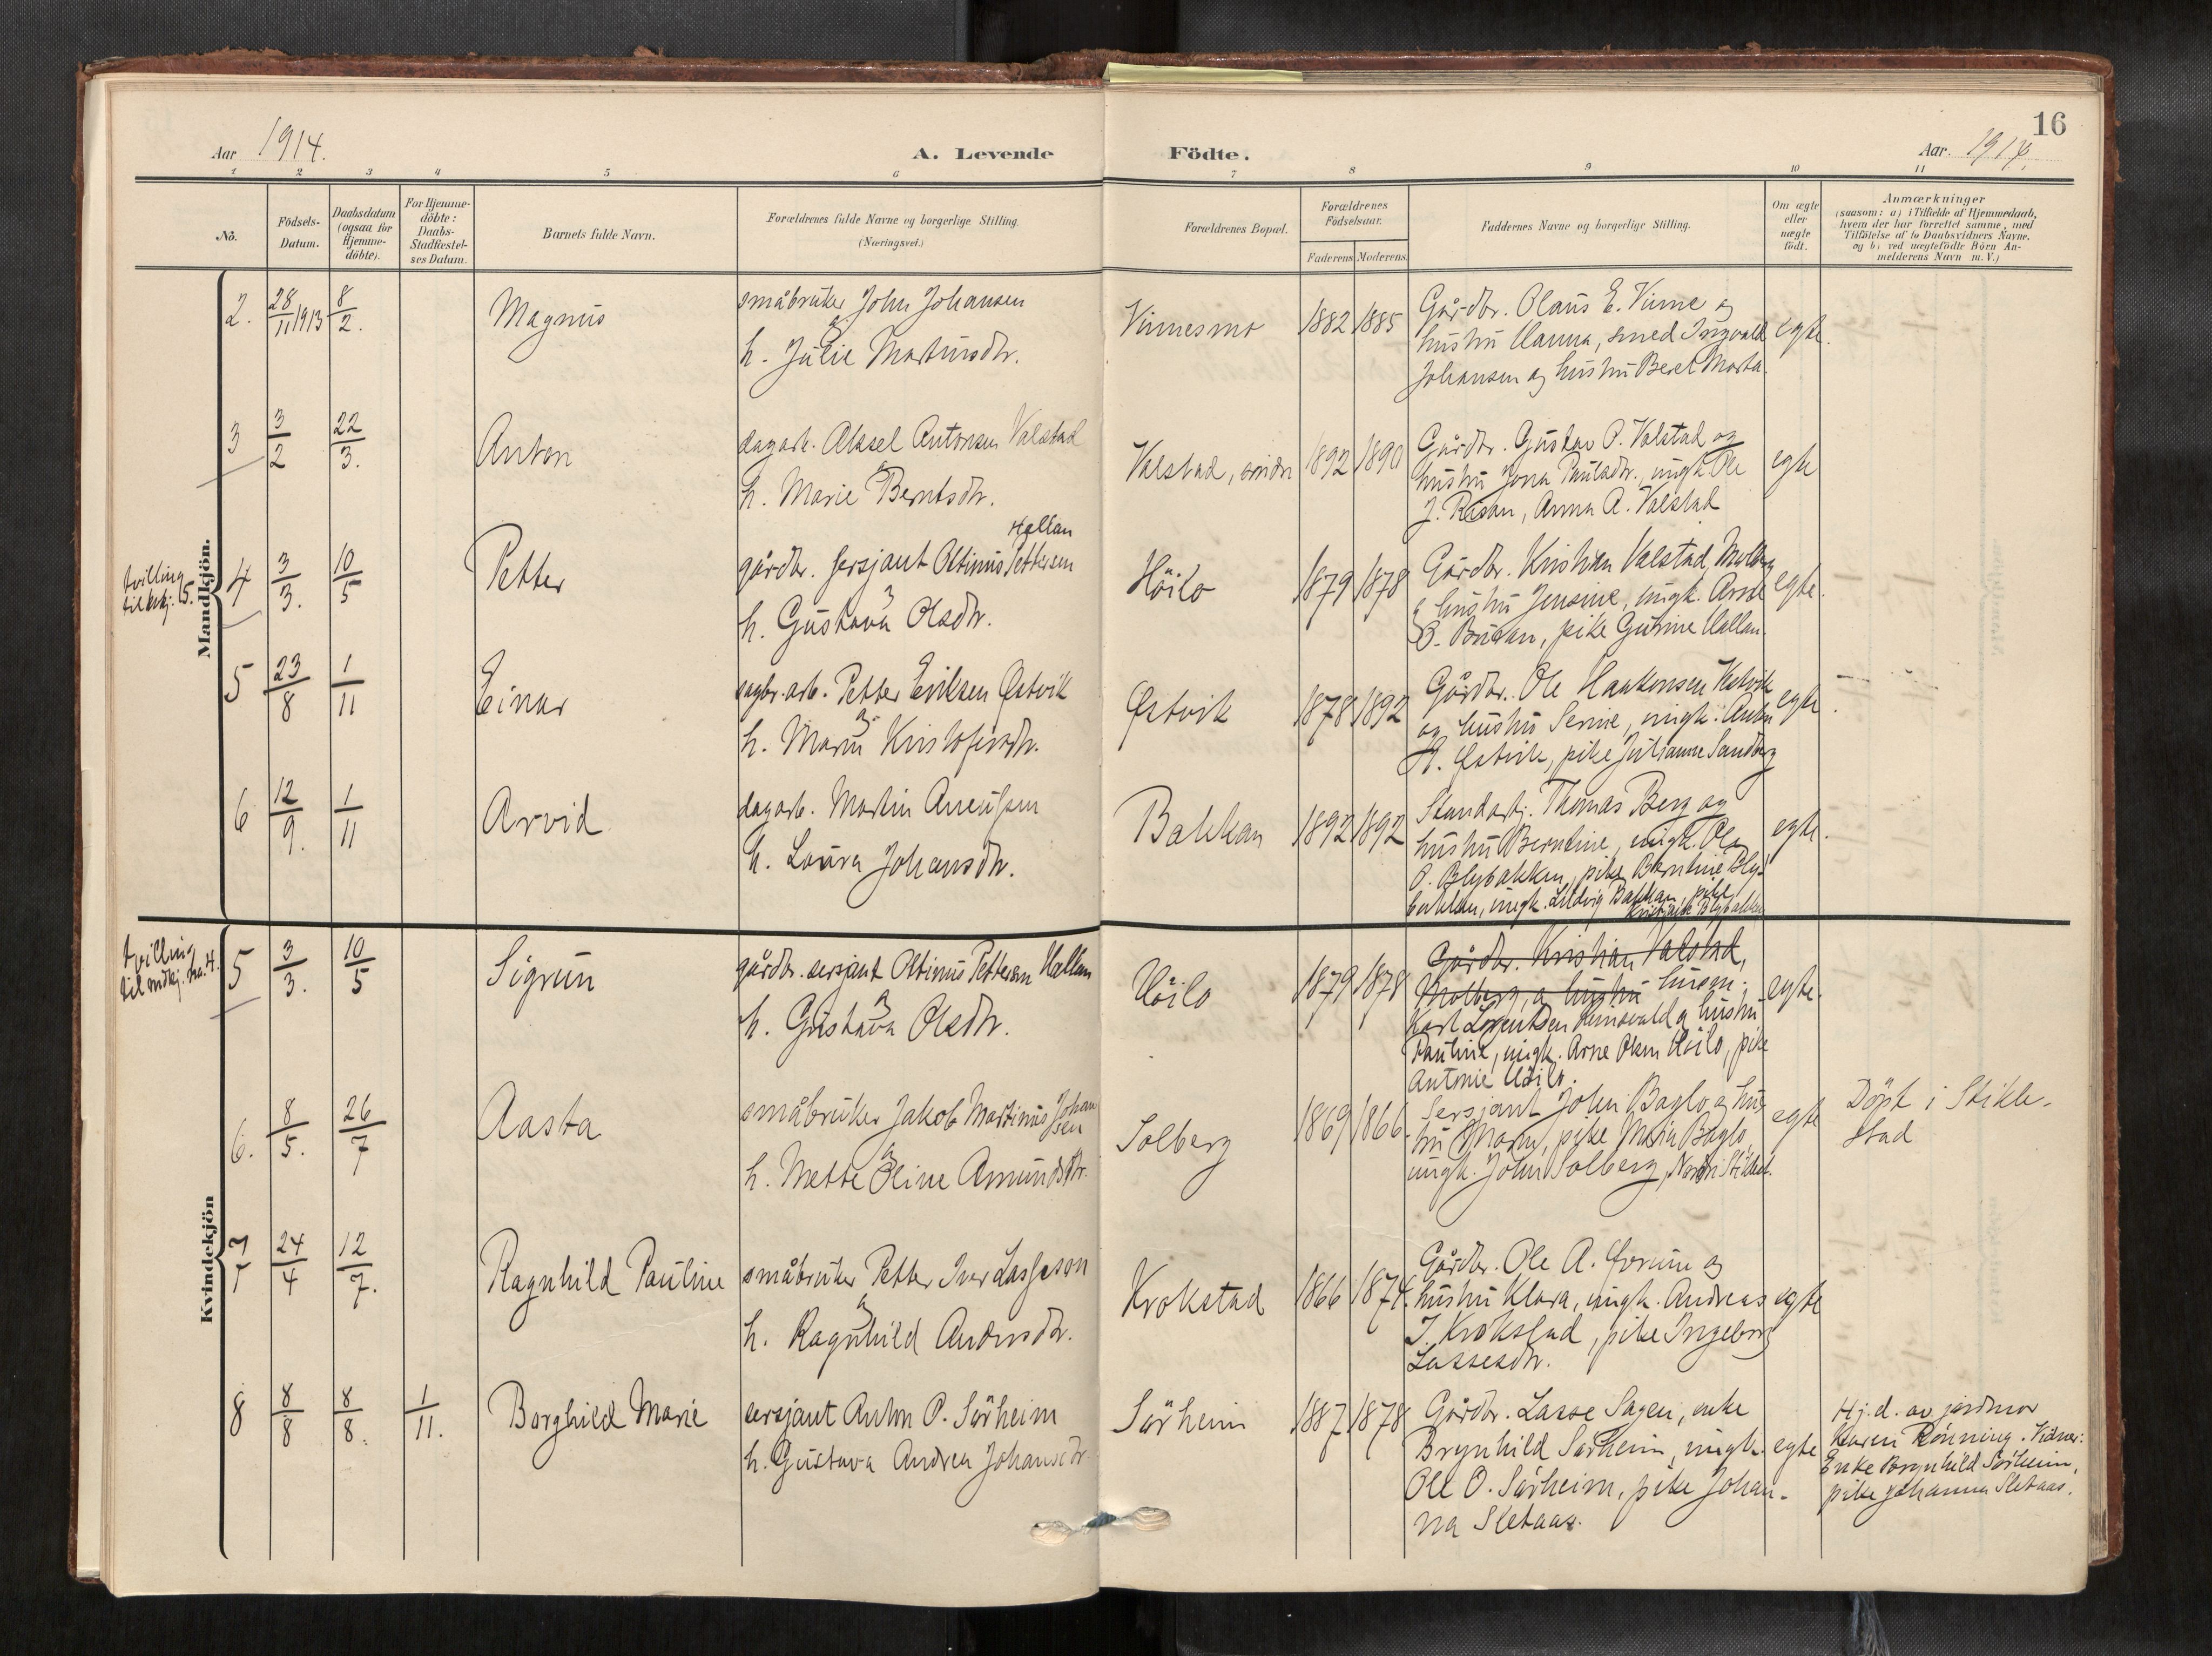 16
Aar 1914.
A. Levende
Födte.
Aar. 1914.
1 2 3 4 5 6 7 8 9 10 11
No.
Födsels-
Datum.
Daabsdatum
(ogsaa for
Hjemme-
döbte).
For Hjemme-
döbte:
Daabs-
Stadfæstel-
ses Datum.
Barnets fulde Navn.
Forældrenes fulde Navne og borgerlige Stilling
(Næringsvei.)
Forældrenes Bopæl.
Forældrenes
Födselsaar.
Faderens Moderens
Faddernes Navne og borgerlige Stilling.
Om ægte
eller
uægte
födt.
Anmærkninger
(saasom: a) i Tilfælde af Hjemmedaab,
hvem der har forrettet samme, med
Tilföielse af to Daabsvidners Navne.
og b) ved uægtefödte Börn An-
melderens Navn m. V.)
Mandkjön.
2. 28/11 1913 8/2.
Magnus
småbruker John Johansen
og
h. Julie Martinsdtr.
Vinnesmo
1882 1885
Gårdbr. Olaus E. Vinne og
hustru Hanna, smed Ingvald
Johansen og hustru Beret Marta.
egte.
3 3/2 22/3.
Anton
dagarb. Aksel Antonsen Valstad
og
h. Marie Berntsdtr.
Valstad, östre
1892 1890
Gårdbr. Gustav P. Valstad og
hustru Jona Paulsdtr., ungk. Ole
J. Risan, Anna A. Valstad
egte
tvilling
til kvkj. 5.
4 3/3. 10/5
Petter
Hallan
gårdbr. sersjant Oltinus Pettersen
og
h. Gustava Olsdtr.
Höilo
1879 1878
Gårdbr. Kristian Valstad, Molberg
og hustru Jensine, ungk. Arne
O. Buran, pike Gurine Hallan.
egte.
5 23/8 1/11
Einar
sagbr. arb. Petter Eriksen Østvik
og
h. Marie Kristofersdtr.
Østvik
1878 1892
Gårdbr. Ole Haakonsen Hestvik
og hustru Serine, ungk. Anton
H. Østvik, pike Julianne Sandberg
egte.
6 12/9. 1/11
Arvid
dagarb. Martin Areusen
h. Laura Johansdtr.
Bakkan
1892 1892
Standartj. Thomas Berg og
hustru Berntine, ungk. Ole
P. Blybakken, pike Berntine Bly-
bakken, ungk. Ludvig Bakkan, pike
Blybakken
egte.
Kvindekjön
tvilling
til mdkj. no. 4.
5 3/3. 10/5
Sigrun
gårdbr. sersjant Oltinus Pettersen Hallan
og
h. Gustava Olsdtr.
Höilo
1879 1878
Gårdbr. Kristian Valstad,
Molberg, og hustru husm.
Karl Lorentsen Rinsvald og hustru
Pauline, ungk. Arne Olsen Höilo, pike
Antonie Höilo.
egte.
6. 8/5. 26/7
Aasta
småbruker Jakob Martinus Johan
sen
og
h. Mette Oline Amundsdtr.
Solberg
1869 1866.
Sersjant John Baglo og hus-
tru Maria, pike Maria Baglo,
ungk. John Solberg,
egte
Döpt i Stikle-
stad
7 24/4 12/7.
Ragnhild Pauline
småbruker Petter Iver Lassesson
og
h. Ragnhild Andersdtr.
Krokstad
1866 1874.
Gårdbr. Ole A. Green og
hustru Klara, ungk. Andreas
J. Krokstad, pike Ingeborg
Lassesdtr.
egte
8 8/8 8/8. 1/11.
Borghild Marie
sersjant Anton P. Sörheim
h. Gustava Andrea Johansdtr
Sörheim
1887 1878
Gårdbr. Lasse Sagen, enke
Brynhild Sörheim, ungk.
Ole O. Sörheim, pike Johan-
na Sletaas.
egte
Hj. d. av jordmor
Karen Rönning. Vidner:
Enke Brynhild Sörheim,
pike Johanna Sletaas.